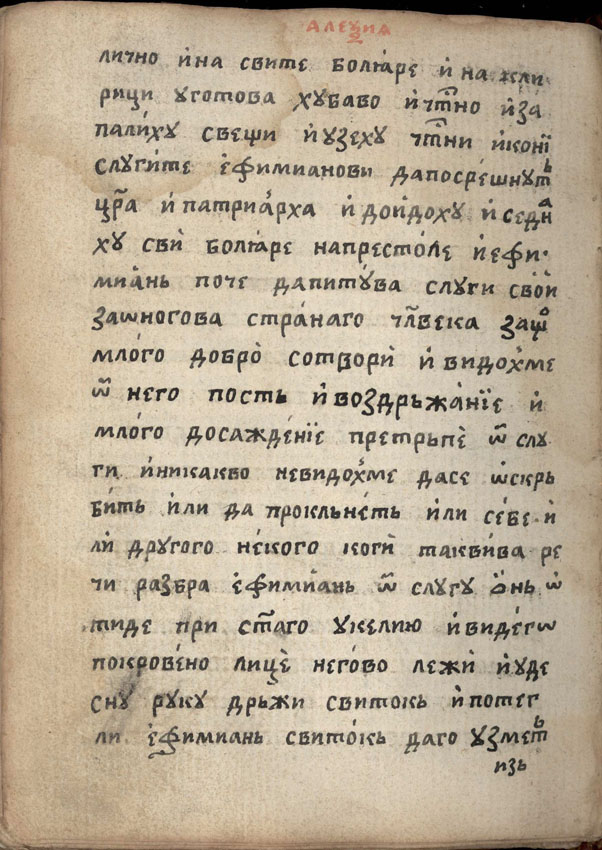 АЛЕѮИА
лично и҆на свите болꙗре и҆ на кли
рици уготова хубаво и҆ чⷭ҇тно и҆ за
пали́ху свещи и҆ узеху чⷭ҇тни и҆кони
слуги́те е҆фимианови дапосрещнутъ
цр҃а и҆ патриа́рха и҆ дои́доху и҆ седна
ху сви́ болꙗре напресто́ле и҆ е҆фи
миа́нь поче дапиту́ва слуги свои҆
заѡногова стра́наго чл҃века защо
мло́го добро̀ сотвори̇̀ и҆ видо́хме
ѿ него пость и҆ воздрьжа́нїе и҆
мло́го досажде́нїе претрьпѐ ѿ слу
ги и҆никакво невидо́хме дасе ѡ҆скрь
би́ть и҆ли да прокльне́ть и҆ли се́бе и҆
ли́ друго́го не́кого коги̇̀ таквива ре
чи разбра е҆фимиа́нь ѿ слугу ѻ҆нь ѿ
тиде при ст҃аго у келию и҆ виде́гѡ
покрове́но лицѐ него́во лежи̇̀ и҆ у де
сну̀ руку дрьжи свитокь и҆ потег
ли е҆фимиань свито́кь даго узметъ
изь